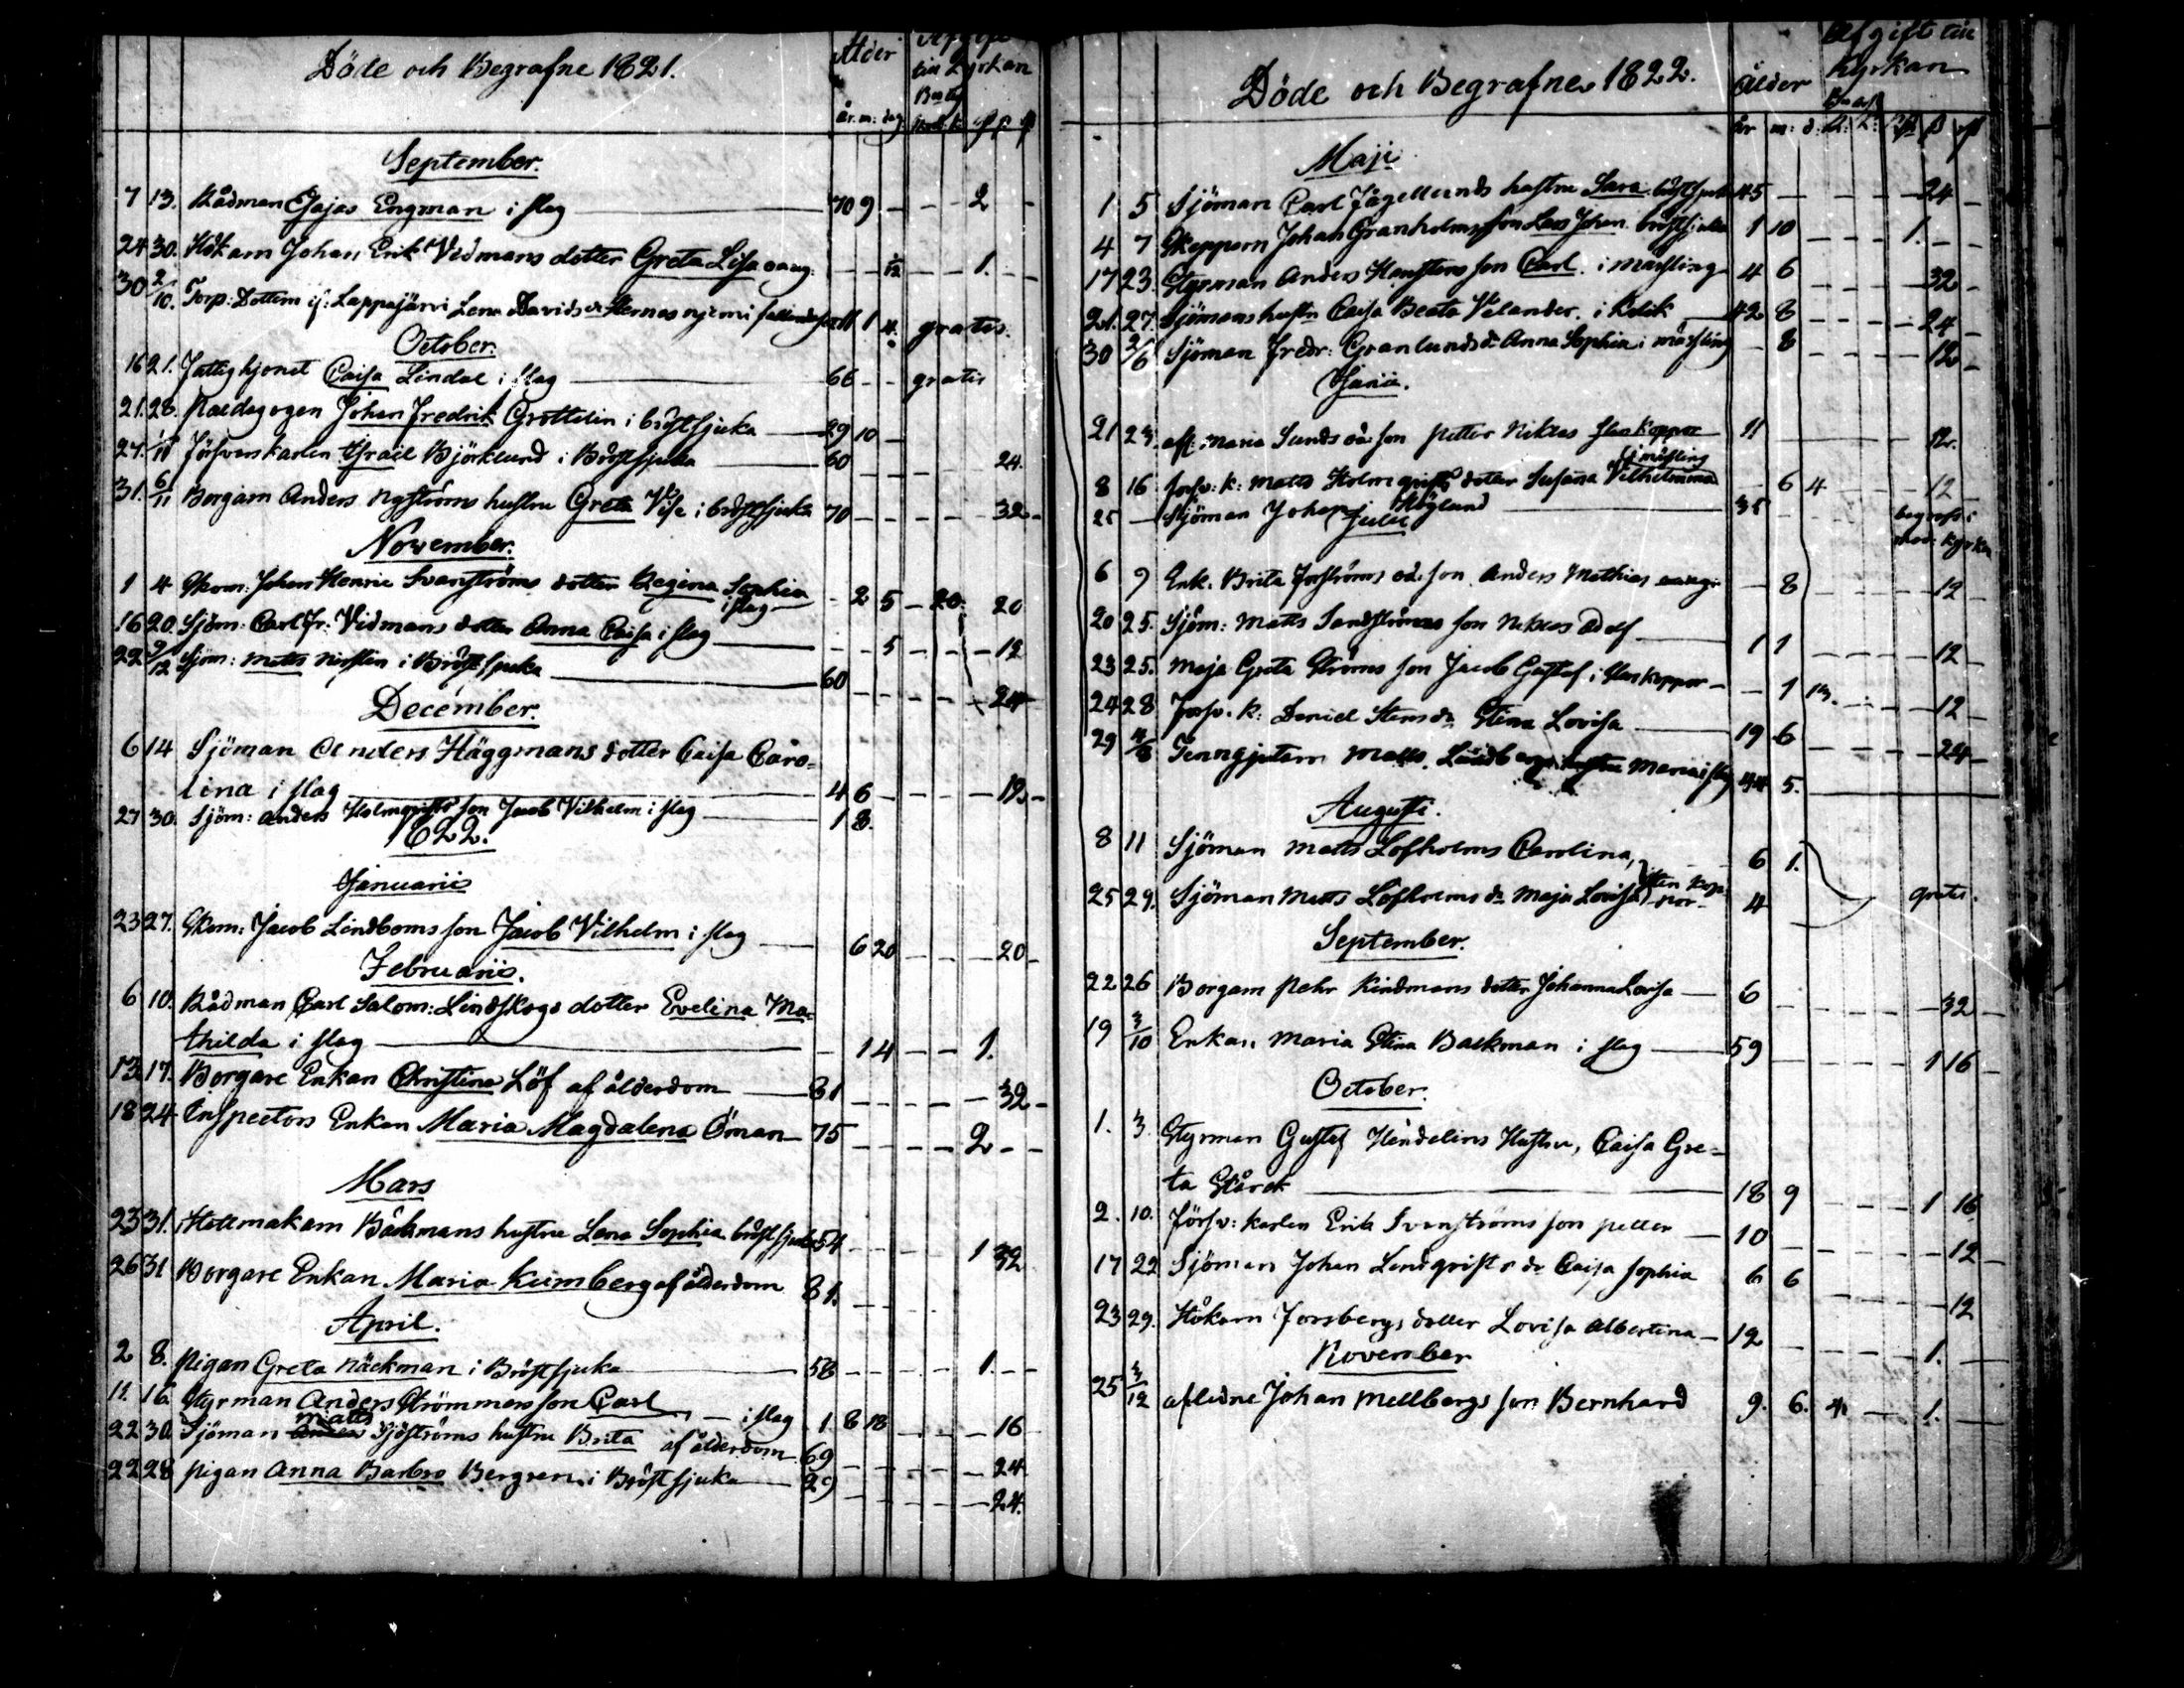 Döde och Begrafne 1821.
Ålder
till Kyrkan
år. m: dag
September.
7 13. Rådman Esajas Engman i slag 70 9 2
24 30. Hökarn Johan Erik Vidmans dotter Greta Lisa oang: 1/12 1.
30 2/10. Torp: Dottern if: Lappajärvi Lena Davids dr 11 4 gratis
October.
16 21. Fattighjonet Caisa Lindal i slag 66 gratis
21. 28. Paedagogen Johan Fredrik Grottelin i bröstsjuka 29 10
27. 1/11 Försvarskarlen Israil Björklund i Bröstsjuka 60 24.
31. 6/11 Borgarn Anders Nyströms hustru Greta Visa i bröstsjuka 70 32
November.
1 4 Skom: Johan Henric Svanströms dotter Regina Sophia
i slag 2 5 20 20
16 20. Sjöm: Carl Fr: Vidmans dotter Anna Caisa i slag 5 12
22 9/12 Sjöm: Matts i Bröstsjuka 60 24
December.
6 14 Sjöman Anders Häggmans dotter Caisa Caro=
lina i slag 4 6 12
27 30. Sjöm: Anders Holmqvists son Jacob Vilhelm i slag 1 8.
1822.
Januarii
23 27. Skom: Jacob Lindboms son Jacob Vilhelm i slag 6 20 20
Februarii.
6 10. Rådman Carl Salom: Lindskogs dotter Evelina Ma=
thilda i slag 1 4 1.
13 17. Borgare Enkan Christina Löf af ålderdom 81 32
18 24 Inspectors Enkan Maria Magdalena Öman 75 2
Mars
23 31. Hattmakarn Bäckmans hustru Lena Sophia bröstsjuka 54 1 32
26 31 Borgare Enkan Maria Kumberg af ålderdom 81.
April.
2 8. Pigan Greta Näckman i Bröstsjuka 58 1.
11. 16. Styrman Anders Strömmers son Carl i slag 1. 8 18 16
22 30. Sjöman Matts Sjöströms hustru Brita af ålderdom 69 24
22 28 Pigan Anna Barbro Bergren i Bröstsjuka 29 24.
Döde och Begrafne 1822.
Ålder
Afgift till
Kyrkan
år m: d:
Maji
1 5 Sjöman Carl Fågellunds hustru Sara bröstsjuka 45 24
4 7 Skepparn Johan Granholms son Lars Johan bröstsjuka 1 10 1.
17 23. Styrman Anders son Carl i mässling 4 6 32
21. 27. Sjömans hustru Caisa Beata Velander i Kolik 42 8 24
30 2/6 Sjöman Fredr: Granlunds dr Anna Sophia i mässling 8 12
Junii.
21 23. afl: Maria Sunds oä: son Petter Niklas Stenkoppor 11 12.
i mässling
8 16 Försv: k: Matts Holmqvists dotter Susana Vilhelmina 6 4 12
25 Sjöman Johan Höglund 35 begrafs i
mod: kyrka
Julii
6 9 Enk. Brita Forströms oä: son Anders Mathias oang: 8 12
20 25. Sjöm: Matts Sandströms son Niklas Adolf 1 1 12
23 25. Maja Greta Ströms son Jacob Gustaf i Stenkoppor 1 12
24 28 Försv. k: Daniel Stens dr Stina Lovisa 19 6 24
29 4/8 Tenngjutarn Matts Lundbergs hustru Maria i slag 44 5.
Augusti.
8 11 Sjöman Matts Löfholms Carolina, 6 1.
25 29. Sjöman Matts Löfholms dr Maja Lovisa Stenkop-
por 4 gratis.
September.
22 26 Borgarn Pehr Kindmans dotter Johanna Lovisa 6 32
19 3/10 Enkan Maria Stina Backman i slag 59 1 16
October.
1. 3. Styrman Gustaf Hendelins Hustru, Caisa Gre=
ta Stårck 18 9 1 16
2. 10. Försv: karlen Erik Svanströms son Petter 10 12
17 22 Sjöman Johan Lindqvists dr Caisa Sophia 6 6 12
23 29. Hökarn Forsbergs dotter Lovisa Albertina 12 1.
November
25 3/12 aflidne Johan Mellbergs son Bernhard 9. 6. 4 1.